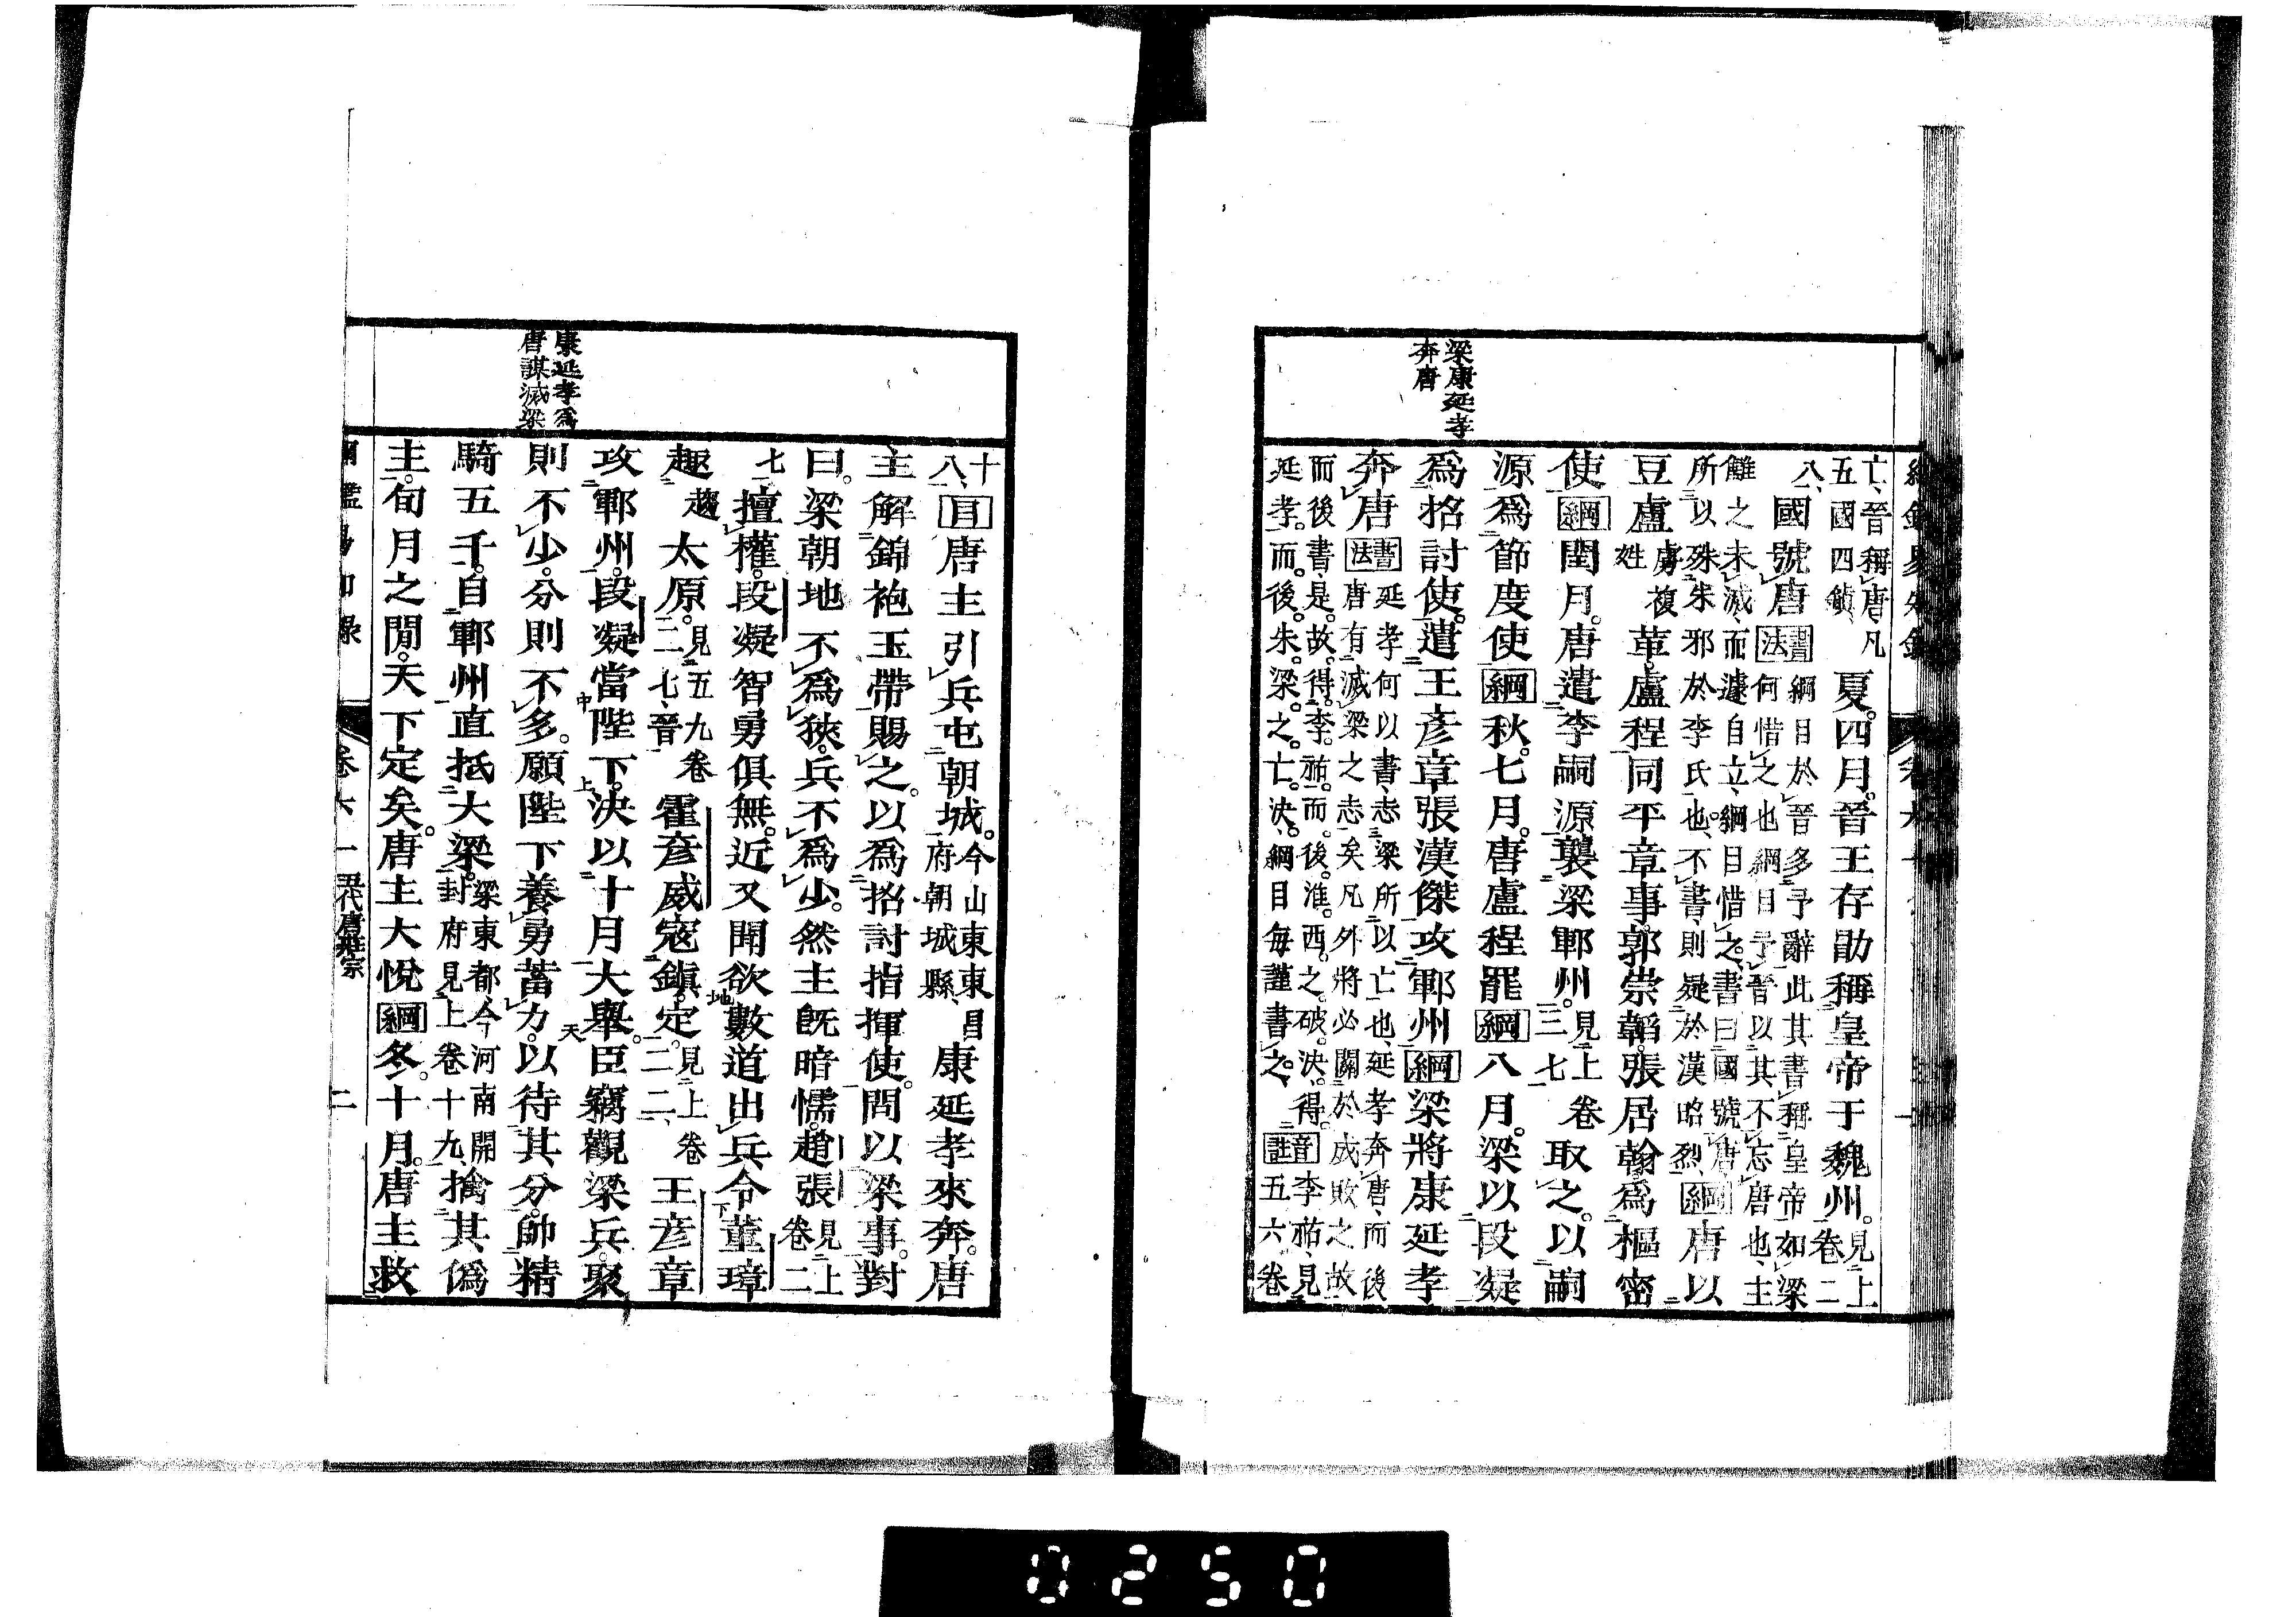 梁康延孝
奔唐
亡、晉稱唐、凡
五國四鎭、
夏。四月。晉王存勛稱皇帝于魏州。見上
卷二
八、
國號唐書法綱目於晉多予辭此其書稱皇帝如梁
何惜之也綱目予晉以其不忘唐也、主
讎之未滅、而遽自立、綱目惜之。書曰國號唐、
所以殊朱邪於李氏也、不書、則疑於漢昭烈、
綱唐以
豆盧虜複
姓革。盧程同平章事。郭崇韜。張居翰爲樞密
使綱閏月。唐遣李嗣源襲梁鄆州。見上卷
三七取之。以嗣
源爲節度使綱秋。七月。唐盧程罷綱八月。梁以段凝
爲招討使。遣王彥章張漢傑攻鄆州綱梁將康延孝
奔唐書法延孝何以書、志梁所以亡也、延孝奔唐、而後
唐有滅梁之志矣凡外將必關於成敗之故
而後書、是。故。得。李。祐。而。後。淮。西。之。破。決、得。
延孝。而。後。朱。梁。之。亡。決、綱目每謹書之、音註李祐、見
五六卷
康延孝爲
唐謀滅梁
十
八、目唐主引兵屯朝城。今山東東昌
府朝城縣、康延孝來奔。唐
主解錦袍玉帶賜之。以爲招討指揮使。問以梁事。對
曰。梁朝地不爲狹。兵不爲少。然主旣暗懦。趙張見上
卷二
七、擅權。段凝智勇俱無。近又聞欲數道出兵。令董璋
趣趨太原。見五九卷
二七、晉霍彥威寇鎭定。見上卷
二二、王彥章
攻鄆州。段凝當陛下。決以十月大舉。臣竊觀梁兵。聚
則不少。分則不多。願陛下養勇蓄力。以待其分。帥精
騎五千。自鄆州直抵大梁。梁東都今河南開
封府見上卷十九、擒其僞
主。旬月之閒。天下定矣。唐主大悅綱冬。十月。唐主救
卷六一 五代唐莊宗 二
0250